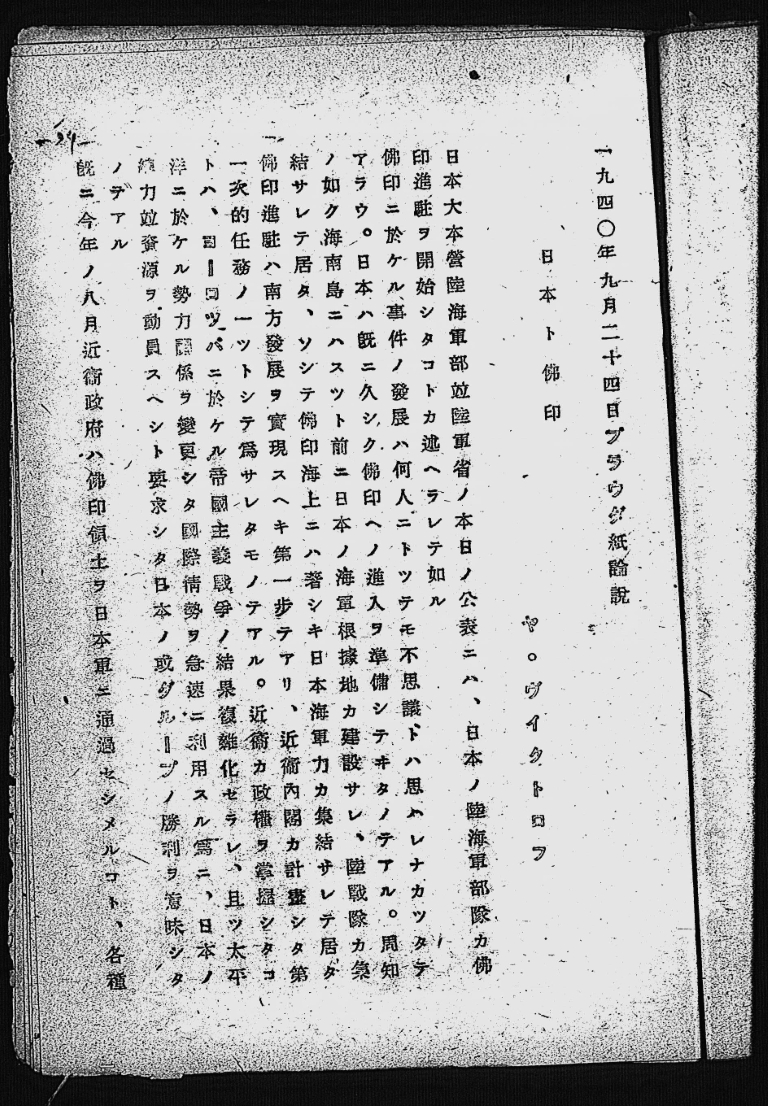 一九四〇年九月二十四日プラウダ紙論說
日本ト佛印
ヤ。ヴイクトロフ
日本大本營陸海軍部竝陸軍省ノ本日ノ公表ニハ、日本ノ陸海軍部隊カ佛
印進駐ヲ開始シタコトカ述ヘラレテ如ル
佛印ニ於ケル事件ノ發展ハ何人ニトツテモ不思議トハ思ハレナカツタテ
アラウ。日本ハ旣ニ久シク佛印ヘノ進入ヲ準備シテヰタノテアル。周知
ノ如ク海南島ニハスツト前ニ日本ノ海軍根據地カ建設サレ、陸戰隊カ集
結サレテ居タ、ソシテ佛印海上ニハ著シキ日本海軍力カ集結サレテ居タ
佛印進駐ハ南方發展ヲ實現スヘキ第一步テアリ、近衞內閣カ計畫シタ第
一次的任務ノ一ツトシテ爲サレタモノテアル。近衞カ政權ヲ掌握シタコ
トハ、ヨーロツパニ於ケル帝國主義戰爭ノ結果復雜化セラレ、且ツ太平
洋ニ於ケル勢力關係ヲ變更シタ國際情勢ヲ急速ニ利用スル爲ニ、日本ノ
力竝資源ヲ動員スヘシト要求シタ日本ノ或グループノ勝利ヲ意味シタ
ノデアル
旣ニ今年ノ八月近衞政府ハ佛印領土ヲ日本軍ニ通過セシメルコト、各種